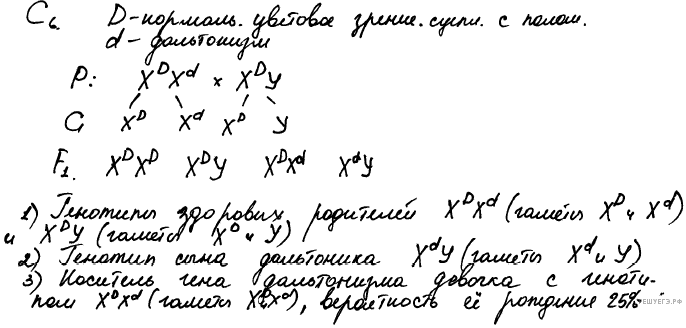 C6. D-нормаль. цветовое зрение. сцепл. с полом.
d - дальтонизм
P: XᴰXᵈ × XᴰY
G Xᴰ Xᵈ Xᴰ Y
F₁. XᴰXᴰ XᴰY XᴰXᵈ XᵈY
1) Генотипы здоровых родителей XᴰXᵈ (гаметы Xᴰ и Xᵈ)
и XᴰY (гаметы Xᴰ и Y)
2) Генотип сына дальтоника XᵈY (гаметы Xᵈ и Y)
3) Носитель гена дальтонизма девочка с геноти-
пом XᴰXᵈ (гаметы XᴰXᵈ), вероятность её рождения 25%
РЕШУЕГЭ.РФ